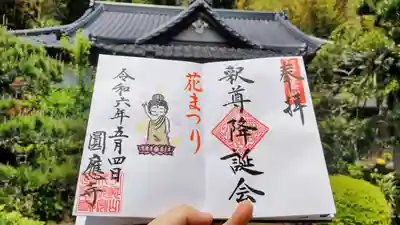 奉拝
釈尊降誕会
花まつり
令和六年五月四日
圓應寺